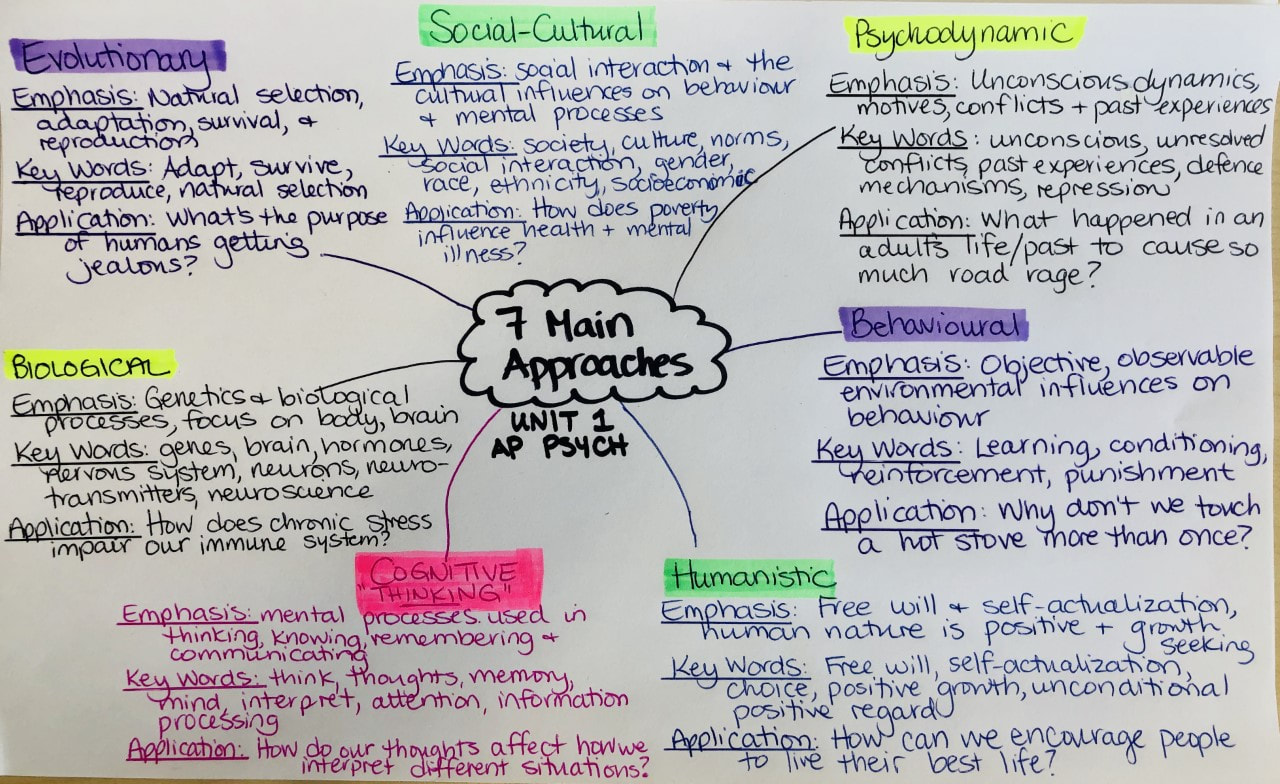 7 Main
Approaches
UNIT 1
AP PSYCH
Evolutionary
Emphasis: Natural selection,
adaptation, survival, &
reproduction
Key Words: Adapt, survive,
reproduce, natural selection
Application: What's the purpose
of humans getting
jealous?
Social-Cultural
Emphasis: social interaction & the
cultural influences on behaviour
& mental processes
Key Words: society, culture, norms,
social interaction, gender,
race, ethnicity, socioeconomic
Application: How does poverty
influence health + mental
illness?
Psychodynamic
Emphasis: Unconscious dynamics,
motives, conflicts + past experiences
Key Words: unconscious, unresolved
conflicts, past experiences, defence
mechanisms, repression
Application: What happened in an
adult's life/past to cause so
much road rage?
Behavioural
Emphasis: Objective, observable
environmental influences on
behaviour
Key Words: Learning, conditioning,
reinforcement, punishment
Application: Why don't we touch
a hot stove more than once?
BIOLOGICAL
Emphasis: Genetics & biological
processes, focus on body, brain
Key Words: genes, brain, hormones,
nervous system, neurons, neuro-
transmitters, neuroscience
Application: How does chronic stress
impair our immune system?
COGNITIVE
"THINKING"
Emphasis: mental processes used in
thinking, knowing, remembering &
communicating
Key Words: think, thoughts, memory,
mind, interpret, attention, information
processing
Application: How do our thoughts affect how we
interpret different situations?
Humanistic
Emphasis: Free will & self-actualization,
human nature is positive + growth
seeking
Key Words: Free will, self-actualization,
choice, positive growth, unconditional
positive regard
Application: How can we encourage people
to live their best life?